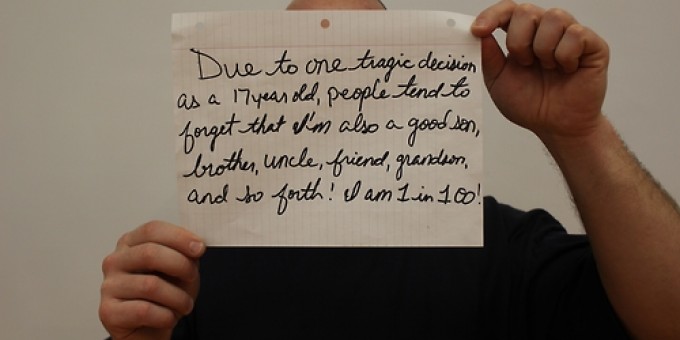 Due to one tragic decision
as a 17 year old, people tend to
forget that I'm also a good son,
brother, uncle, friend, grandson,
and so forth! I am 1 in 100!